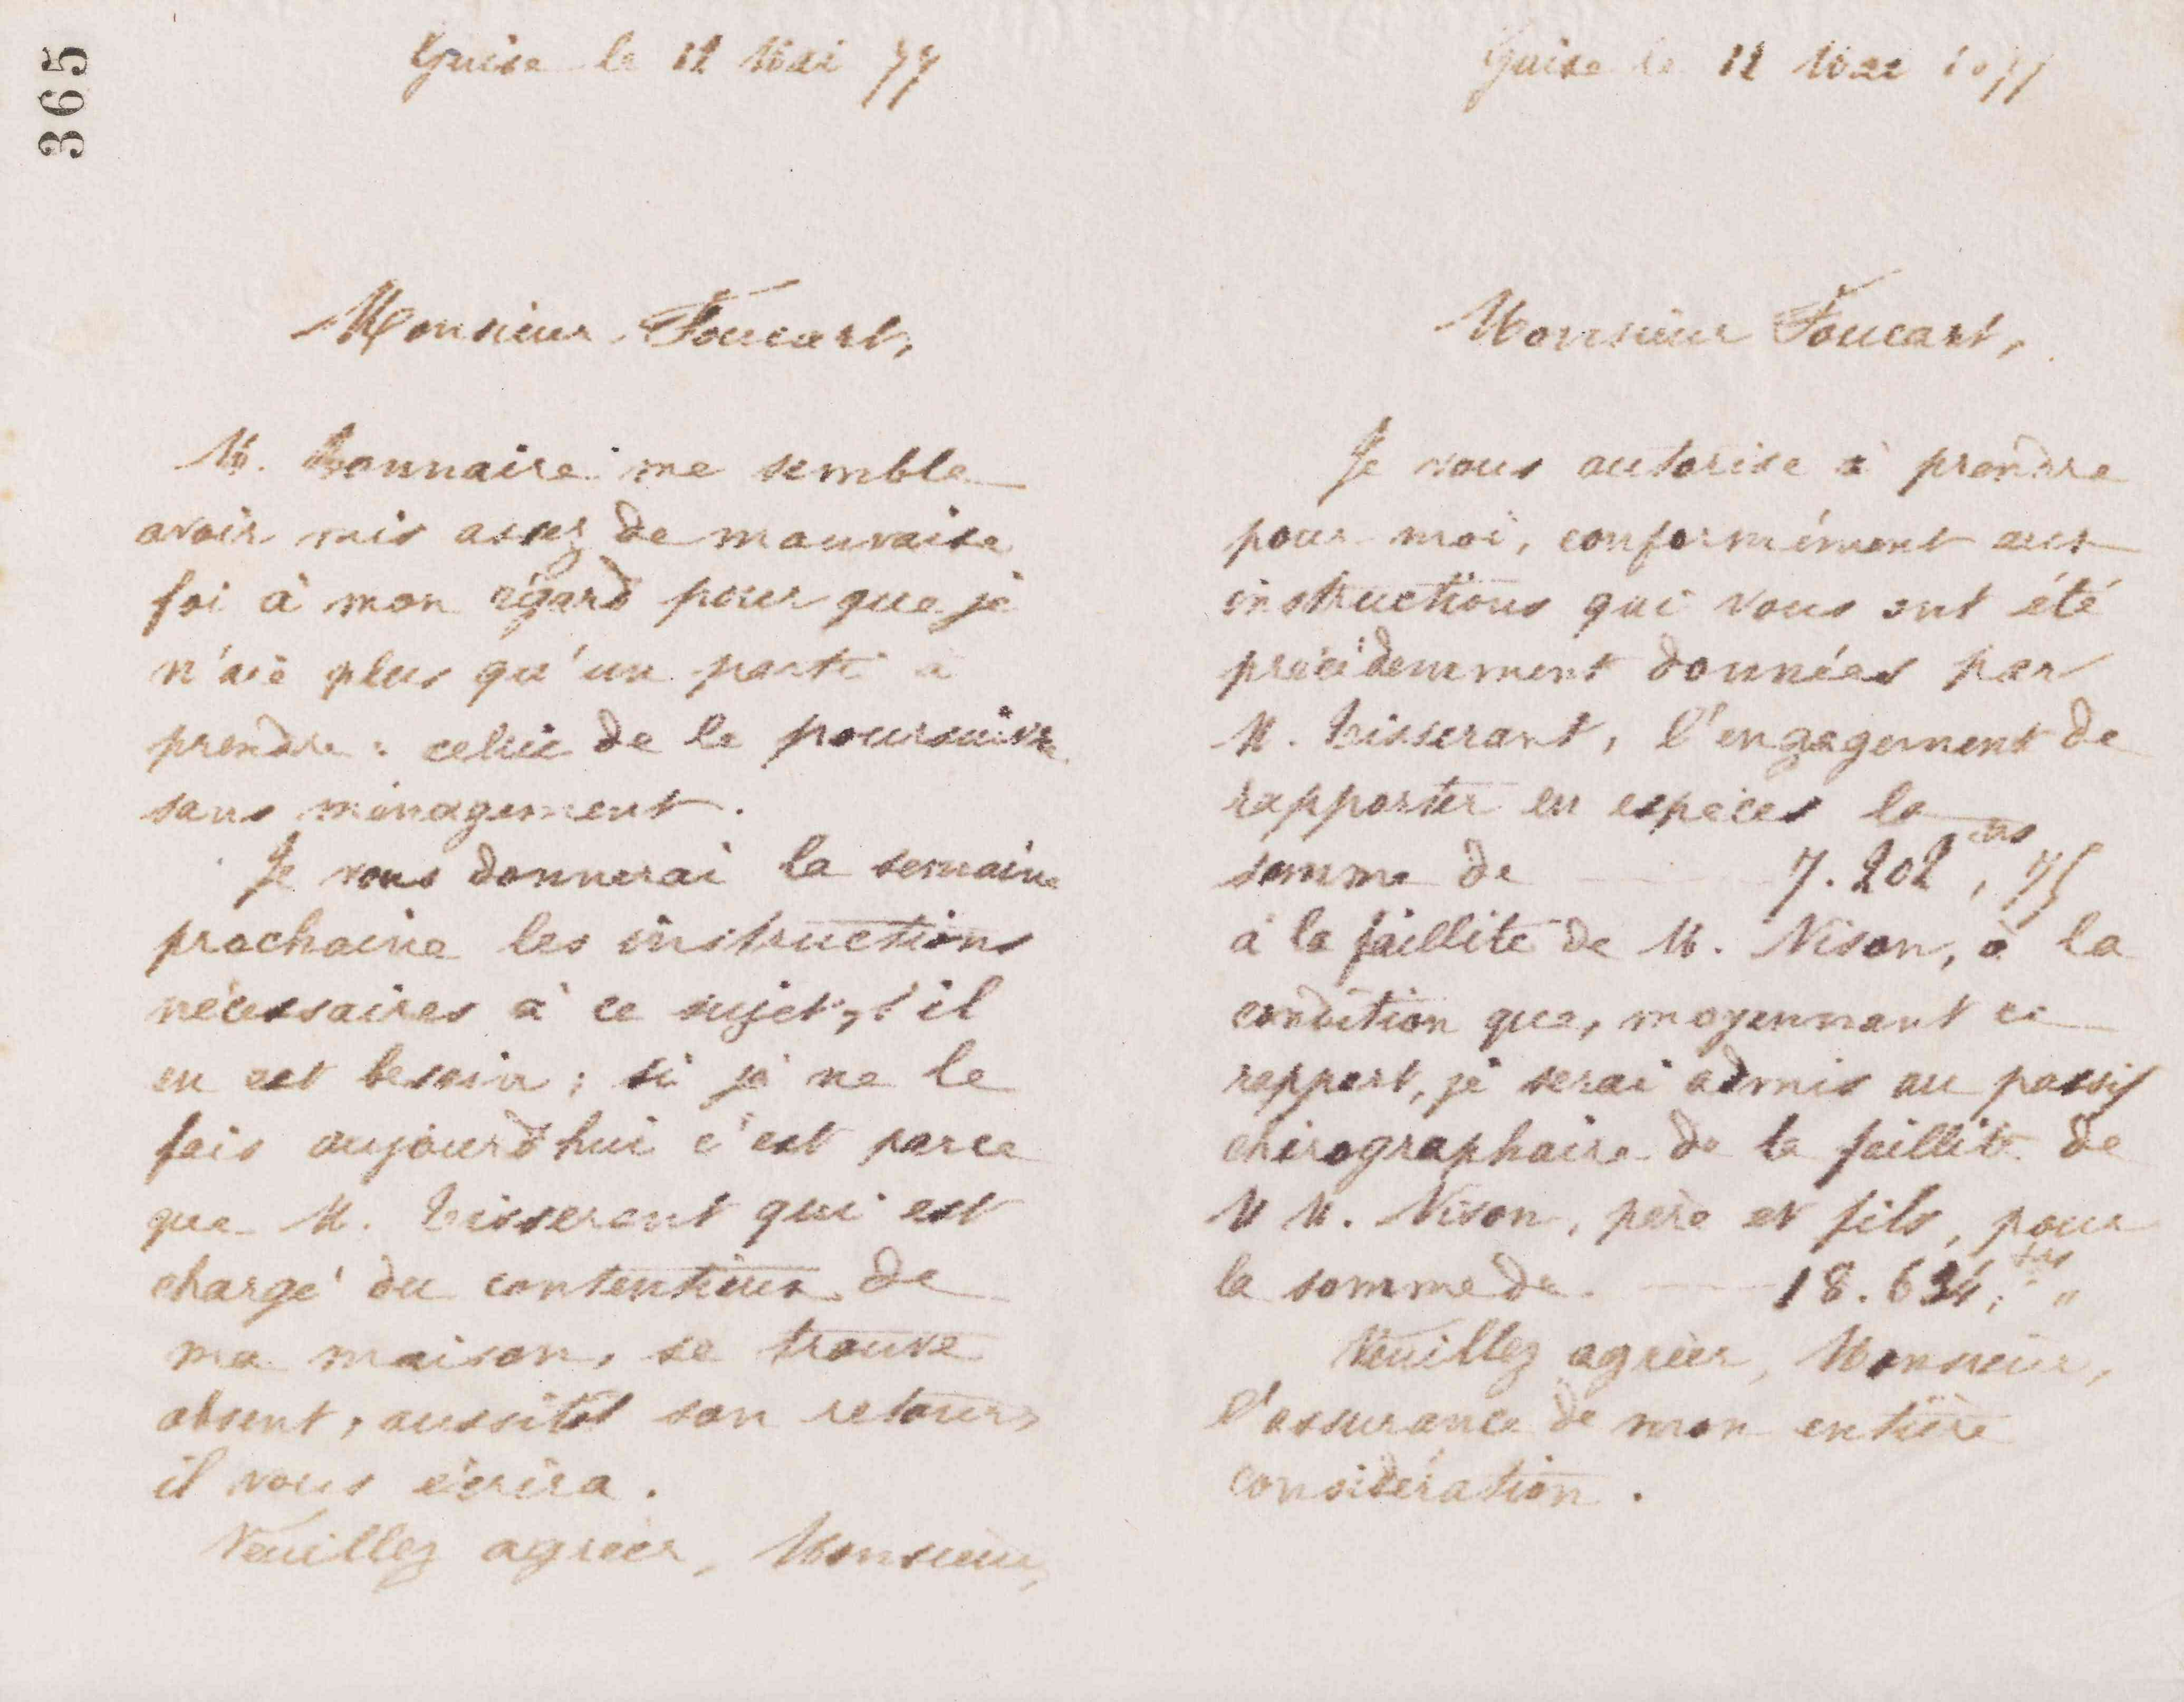 365
Guise le 12 Mai 77
Monsieur Foucart,
M. Bonnaire me semble
avoir mis assez de mauvaise
foi à mon égard pour que je
n'aie plus qu'un parti à
prendre : celui de le poursuivre
sans ménagement.
Je vous donnerai la semaine
prochaine les instructions
nécessaires à ce sujet, s'il
en est besoin ; si je ne le
fais aujourd'hui c'est parce
que M. Tisserant qui est
chargé du contentieux de
ma maison, se trouve
absent, aussitôt son retour,
il vous écrira.
Veuillez agréer, Monsieur,
Guise le 12 Mai 1877
Monsieur Foucart,
Je vous autorise à prendre
pour moi, conformément aux
instructions qui vous ont été
précédemment données par
M. Tisserant, l'engagement de
rapporter en espèces la
somme de 7.202, 75
à la faillite de M. Nison, à la
condition que, moyennant ce
rapport, je serai admis au passif
chirographaire de la faillite de
M M. Nison, père et fils, pour
la somme de 18.634, frs "
Veuillez agréer, Monsieur,
l'assurance de mon entière
considération.